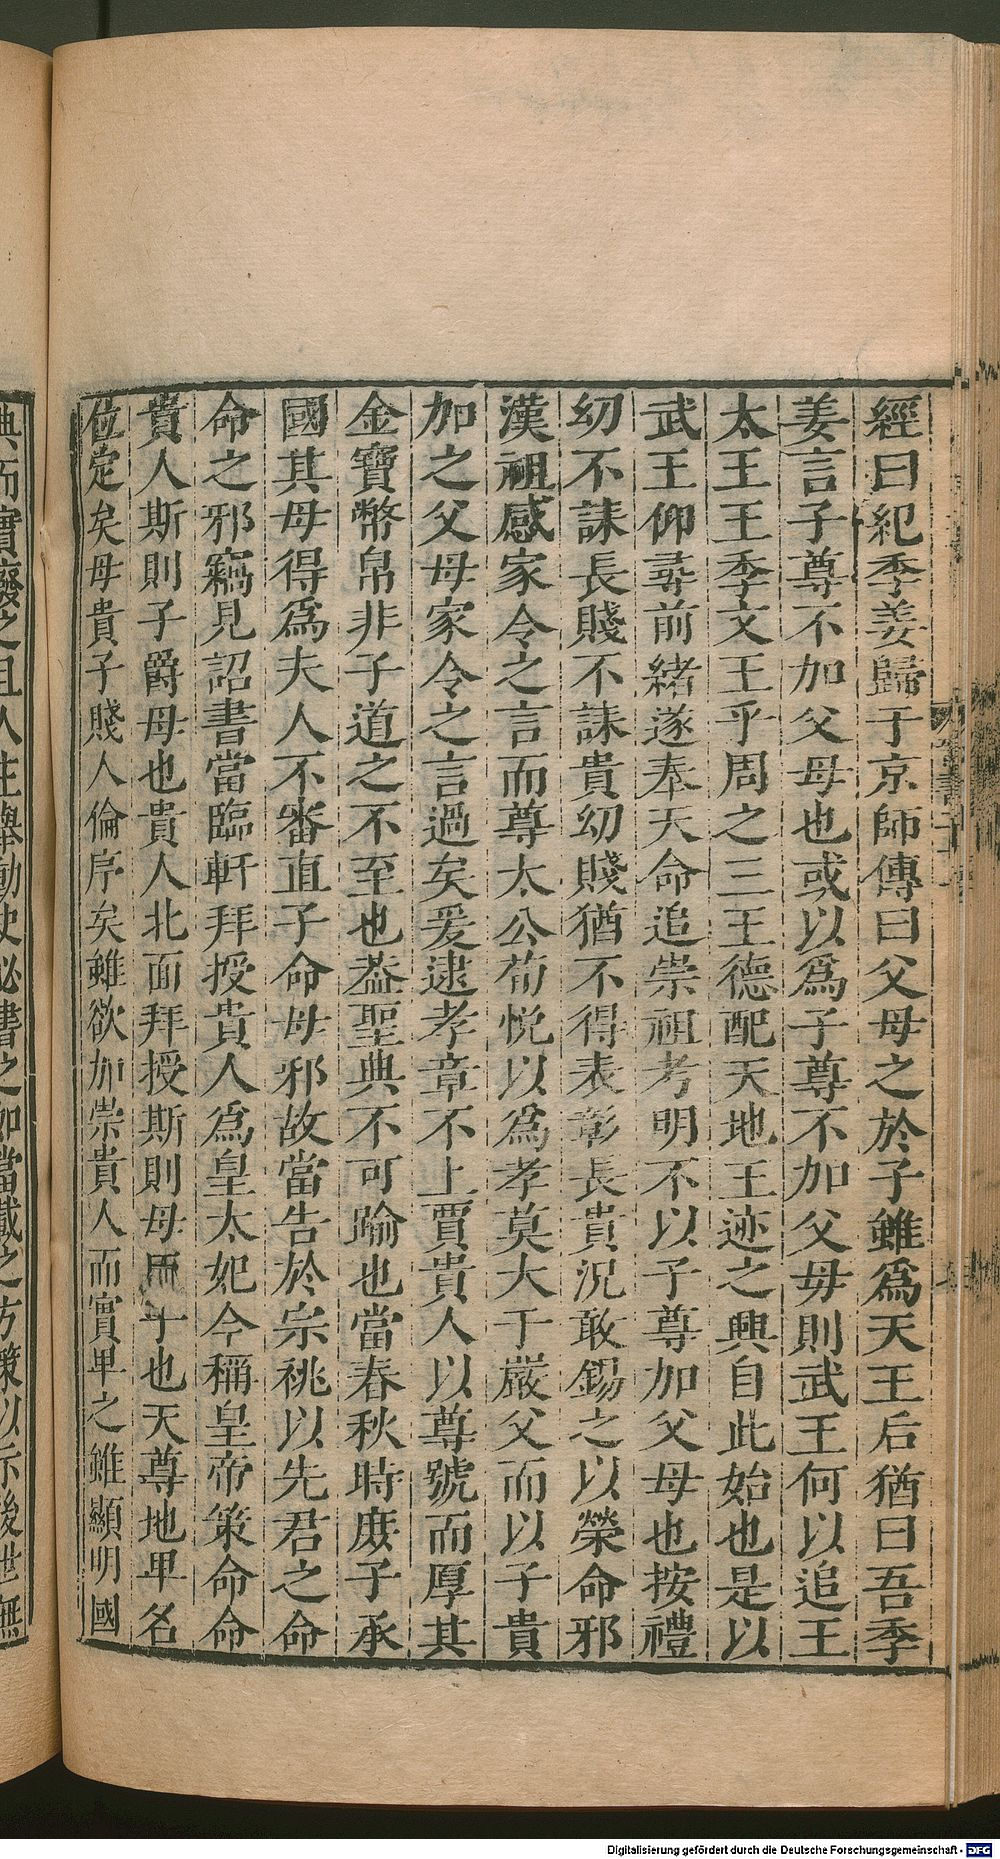 經曰紀季姜歸于京師傳曰父母之於子雖爲天王后猶曰吾季
姜言子尊不加父母也或以爲子尊不加父母則武王何以追王
太王王季文王乎周之三王德配天地王迹之興自此始也是以
武王仰尋前緒遂奉天命追崇祖考明不以子尊加父母也按禮
幼不誄長賤不誄貴幼賤猶不得表彰長貴況敢錫之以榮命邪
漢祖感家令之言而尊太公荀悅以爲孝莫大于嚴父而以子貴
加之父母家令之言過矣爰逮孝章不上賈貴人以尊號而厚其
金寶幣帛非子道之不至也葢聖典不可踰也當春秋時庶子承
國其母得爲夫人不審直子命母邪故當告於宗祧以先君之命
命之邪竊見詔書當臨軒拜授貴人爲皇太妃今稱皇帝策命命
貴人斯則子爵母也貴人北面拜授斯則母臣子也天尊地卑名
位定矣母貴子賤人倫序矣雖欲加崇貴人而實卑之雖顯明國
典而實廢之且人主舉動史必書之如當載之方策以示後世無
Digitalisierung gefördert durch die Deutsche Forschungsgemeinschaft - DFG